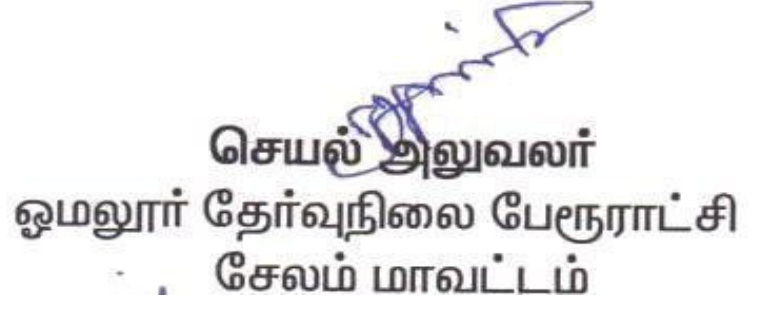 செயல் அலுவலர்
ஓமலூர் தேர்வுநிலை பேரூராட்சி
சேலம் மாவட்டம்